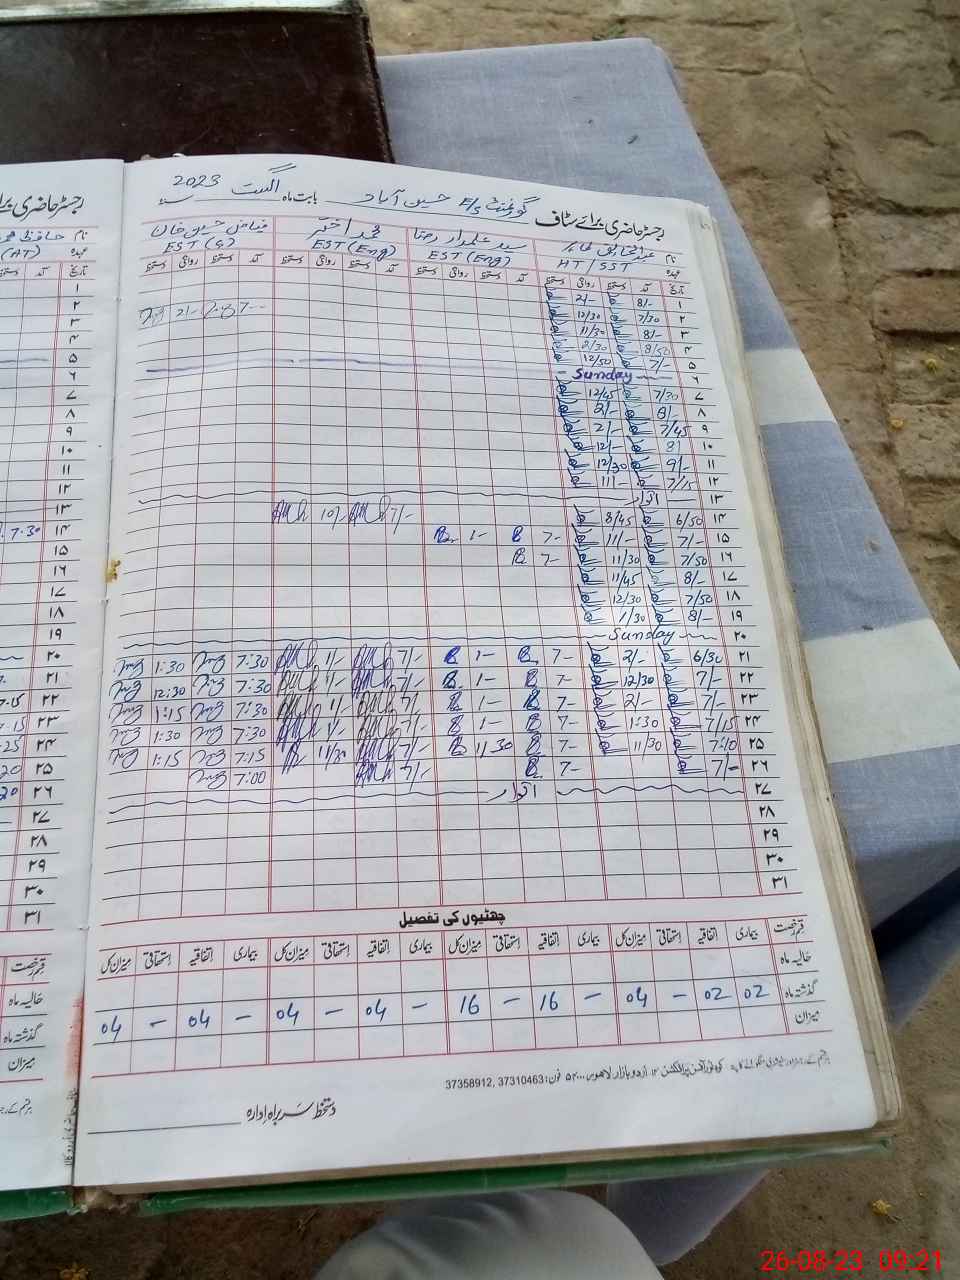 رجسٹر حاضری برائے سٹاف گورنمنٹ E/S حسین آباد بابت ماہ اگست 2023
نام
سید علمدار رضا
محمد اختر
فیاض حسین خان
عہدہ HT/SST
EST (Eng)
EST (Eng)
EST (G)
تاریخ آمد دستخط روانگی دستخط آمد دستخط روانگی دستخط آمد دستخط روانگی دستخط آمد دستخط روانگی دستخط
۱ 8/- 2/-
۲ 7/30 12/30 7-- 2/-
۳ 8/- 11/30
۴ 8/50 2/30
۵ 7/- 12/50
۶ Sunday
۷ 7/30 12/45
۸ 8/- 2/-
۹ 7/45 2/-
۱۰ 8/ 12/-
۱۱ 9/- 12/30
۱۲ 7/15 11/-
۱۳ اتوار
۱۴ 6/50 8/45 7/- 10/-
۱۵ 7/- 11/- 7- 1-
۱۶ 7/50 11/30 7-
۱۷ 8/- 11/45
۱۸ 7/50 12/30
۱۹ 8/- 1/30
۲۰ Sunday
۲۱ 6/30 2/- 7- 1- 7/- 1/- 7:30 1:30
۲۲ 7/- 12/30 7- 1- 7/- 1/- 7:30 12:30
۲۳ 7/- 2/- 7- 1- 7/- 1/- 7:30 1:15
۲۴ 7/15 1:30 7- 1- 7/- 1/- 7:30 1:30
۲۵ 7:10 11/30 7- 11/30 7/- 11/30 7:15 1:15
۲۶ 7/- 7- 7/- 7:00
۲۷ اتوار
۲۸
۲۹
۳۰
۳۱
چھٹیوں کی تفصیل
قسم رخصت بیماری اتفاقیہ استحقاقی میزان کل بیماری اتفاقیہ استحقاقی میزان کل بیماری اتفاقیہ استحقاقی میزان کل بیماری اتفاقیہ استحقاقی میزان کل
حالیہ ماہ
گذشتہ ماہ 02 02 - 04 - 16 - 16 - 04 - 04 - 04 - 04
میزان
اردو بازار لاہور فون: 37310463, 37358912
دستخط سربراہ ادارہ
رجسٹر حاضری
نام
عہدہ (AT)
تاریخ آمد دستخط
۱
۲
۳
۴
۵
۶
۷
۸
۹
۱۰
۱۱
۱۲
۱۳
۱۴ 7.30
۱۵
۱۶
۱۷
۱۸
۱۹
۲۰
۲۱
۲۲
۲۳
۲۴
۲۵
۲۶
۲۷
۲۸
۲۹
۳۰
۳۱
قسم رخصت
حالیہ ماہ
گذشتہ ماہ
میزان
26-08-23 09:21